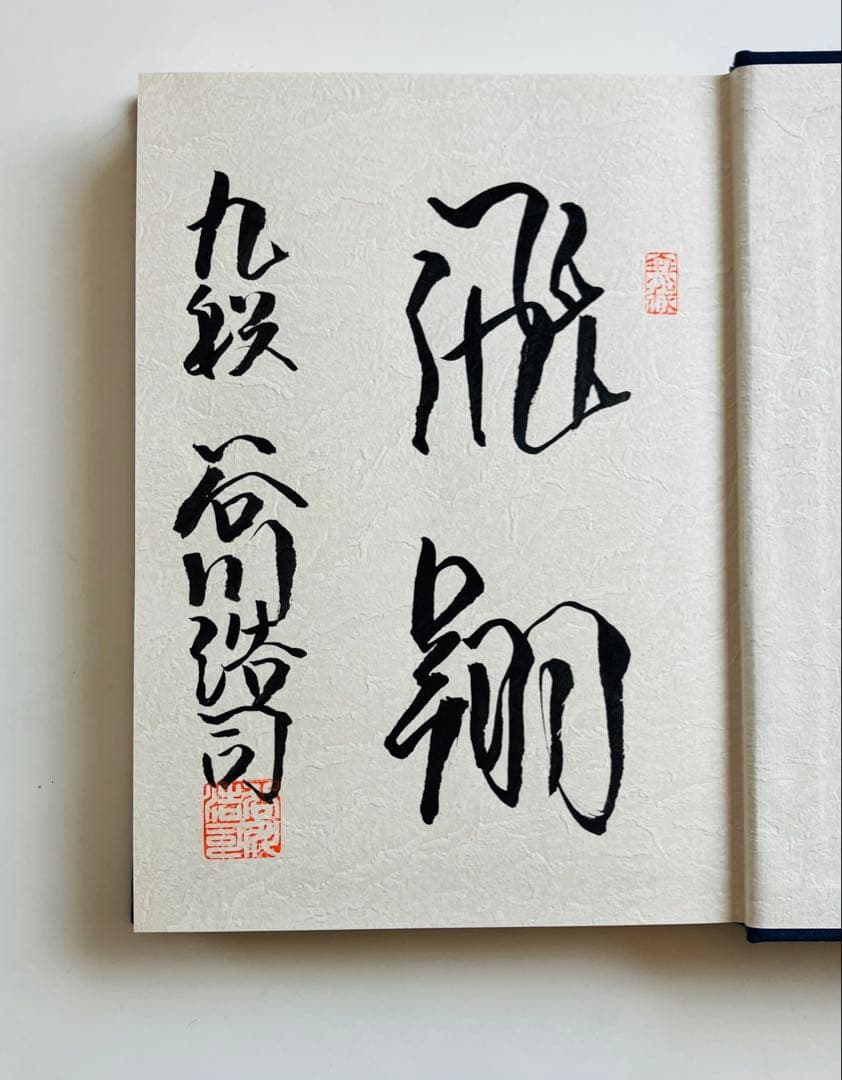 飛翔
九段 谷川浩司